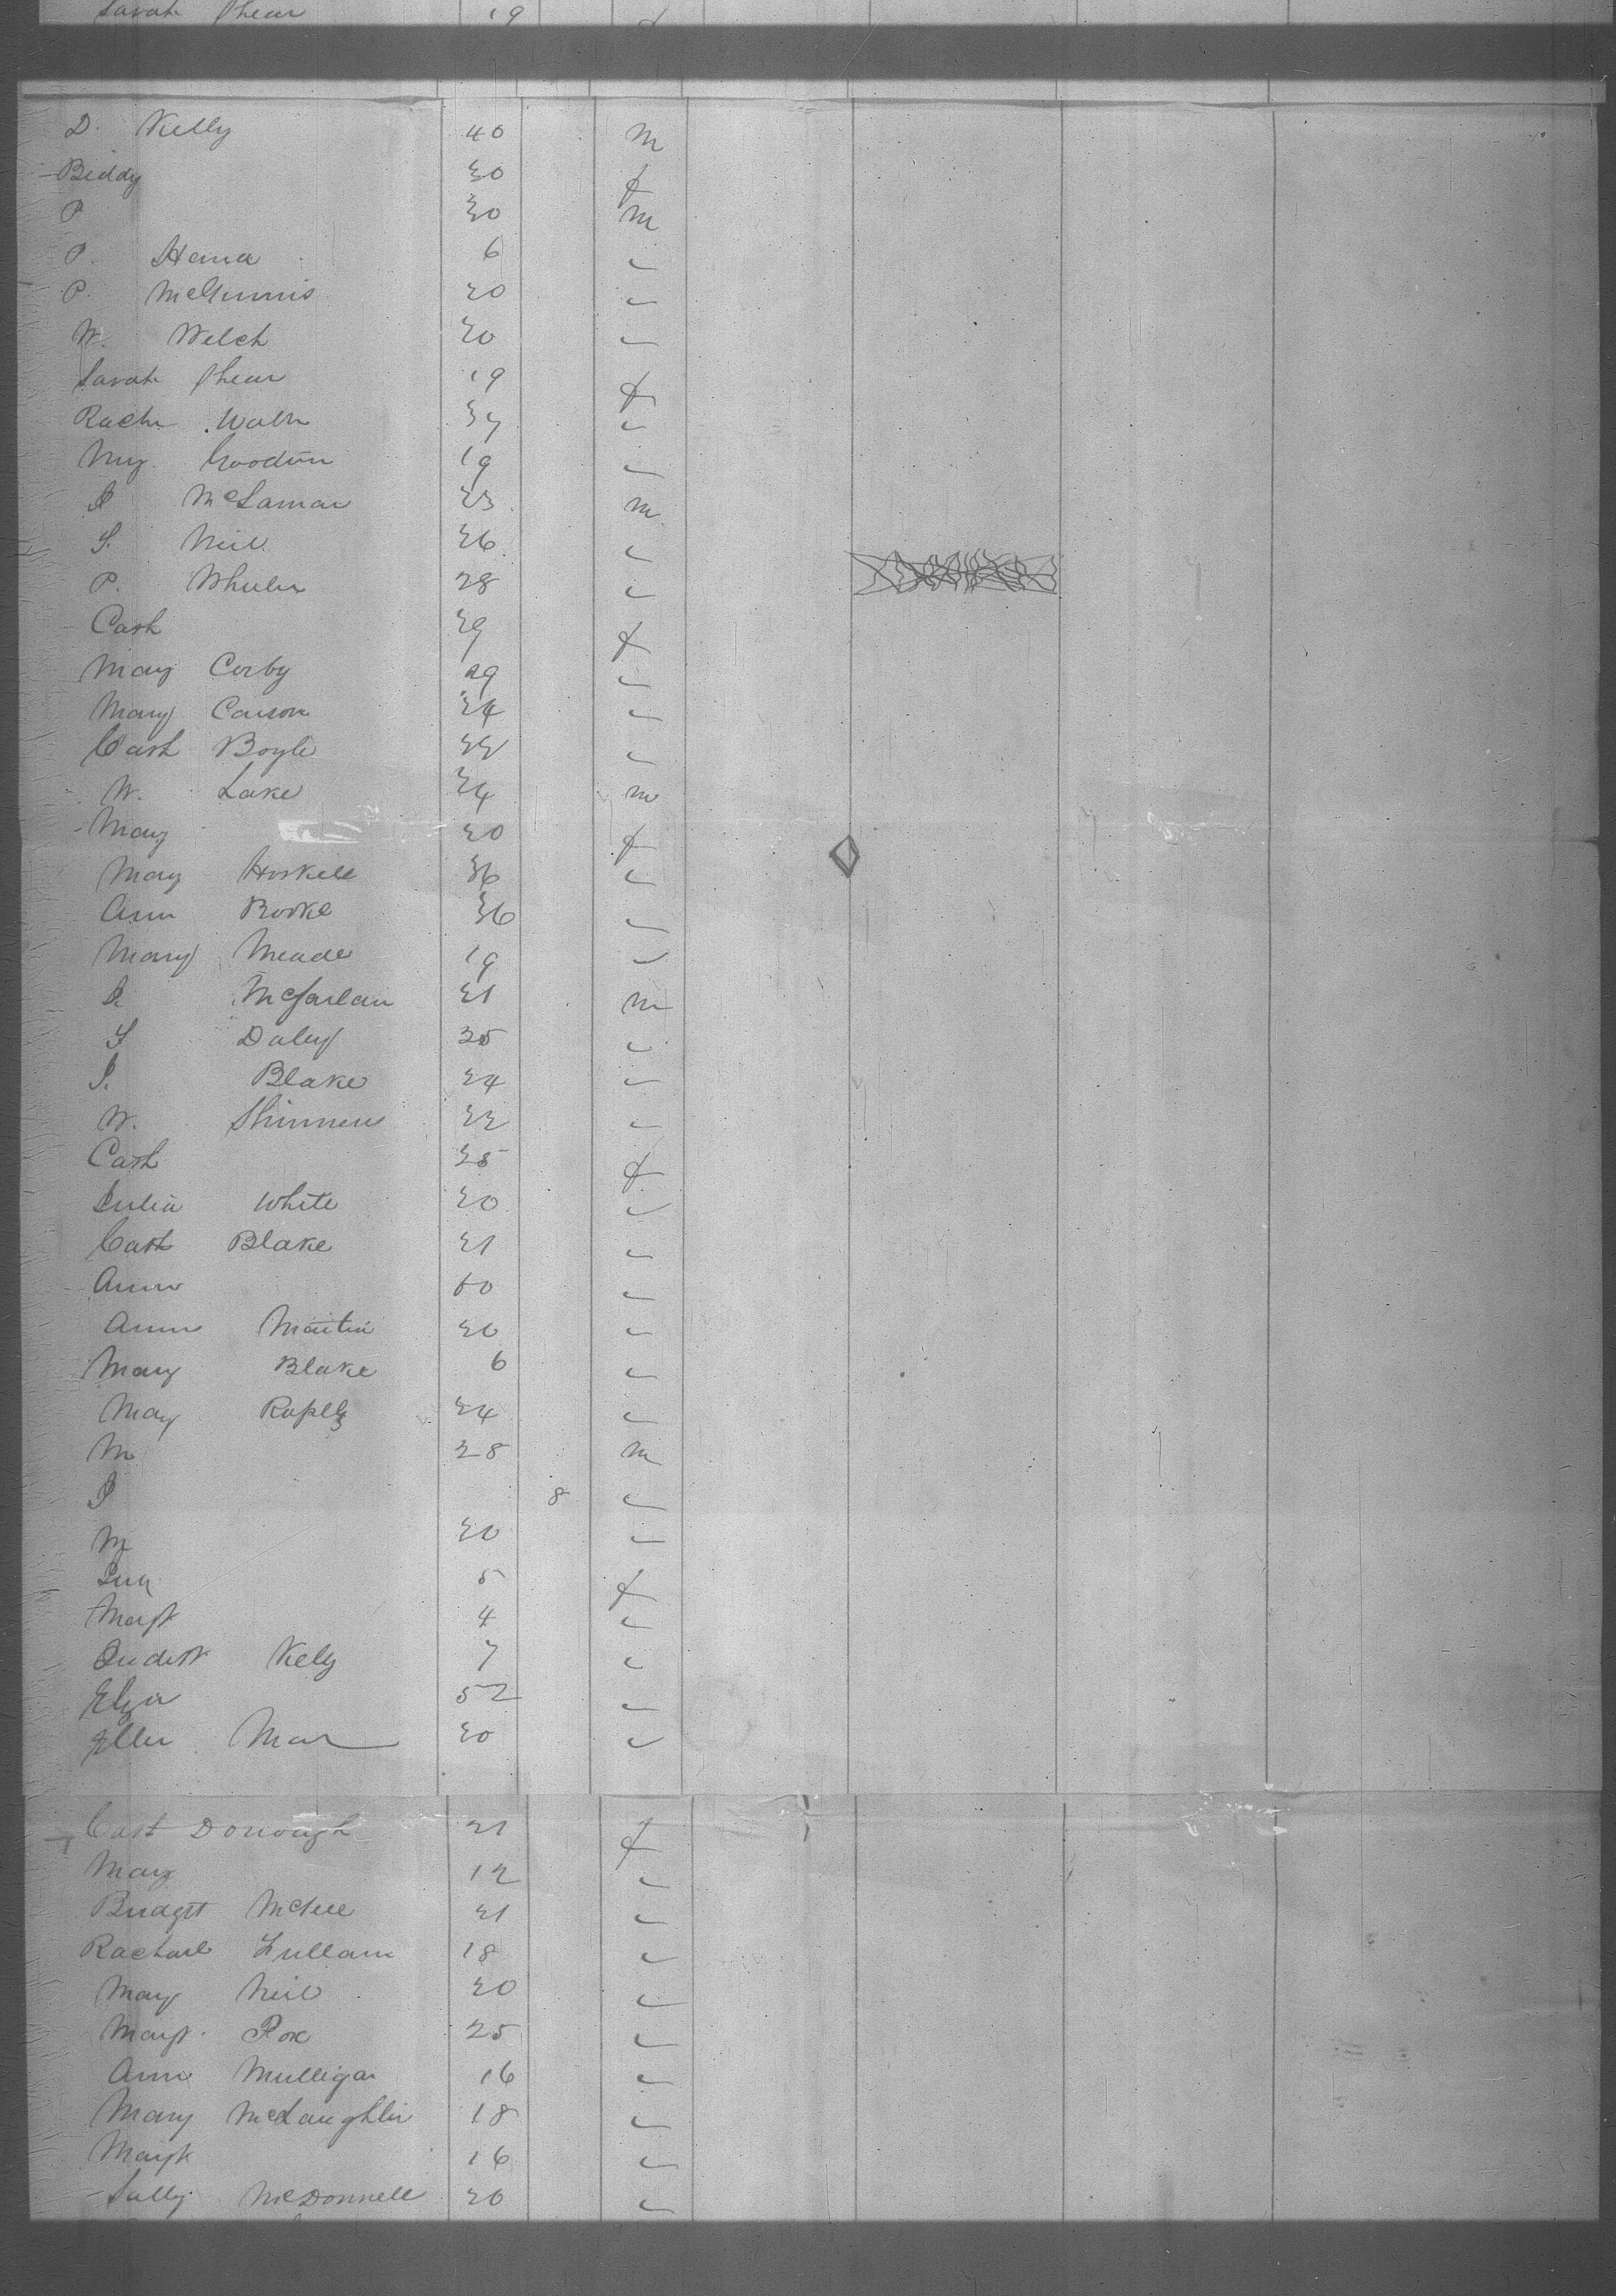 Sarah Shear 19 f
D. Kelly 40 m
Biddy 30 f
P 30 m
P. Hana 6 "
P. McGinnis 20 "
W. Welch 20 "
Sarah Shear 19 f
Rach Walh "
My. Goodwin 19 "
J McLamar 23 m
S. Neil 26 "
P. Wheeler 28 "
Cath 29 f
Mary Corby 29 "
Mary Carson 24 "
Cath Boyle 22 "
W. Lake 24 m
Mary 20 f
Mary Hoskell 36 "
Ann Rorke 36 "
Mary Meade 19 "
J. McFarlan 21 m
J Daley 35 "
J. Blake 24 "
W. Skinnen 22 "
Cath 25 f
Julia White 20 "
Cath Blake 21 "
Ann 60 "
Ann Martin 20 "
Mary Blake 6 "
Mary 24 "
M 28 m
J 8 "
M 20 "
5 f
Margt 4 "
Kelly 7 "
Eliza 52 "
Ellen Mar 20 "
Cath Donough 21 f
Mary 12 "
Bridget 21 "
Rachael Fullam 18 "
Mary Neil 20 "
Margt. Rox 25 "
Ann Mulligan 16 "
Mary McLaughlin 18 "
Margt 16 "
Sally McDonnell 20 "